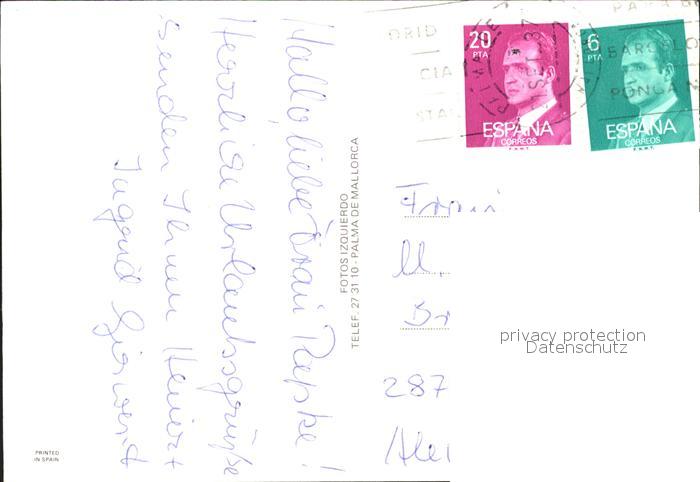 Hallo, liebe Frau Repke!
Herrliche Urlaubsgrüße
senden Ihnen Heinert
Ingrid
FOTOS IZQUIERDO
TELEF. 27 31 10 - PALMA DE MALLORCA
PRINTED
IN SPAIN
20
PTA
ESPAÑA
CORREOS
F.N.M.T.
6
PTA
ESPAÑA
CORREOS
F.N.M.T.
DRID
CIA
BARCELO
PONGA
Frau
U.
287
privacy protection
Datenschutz